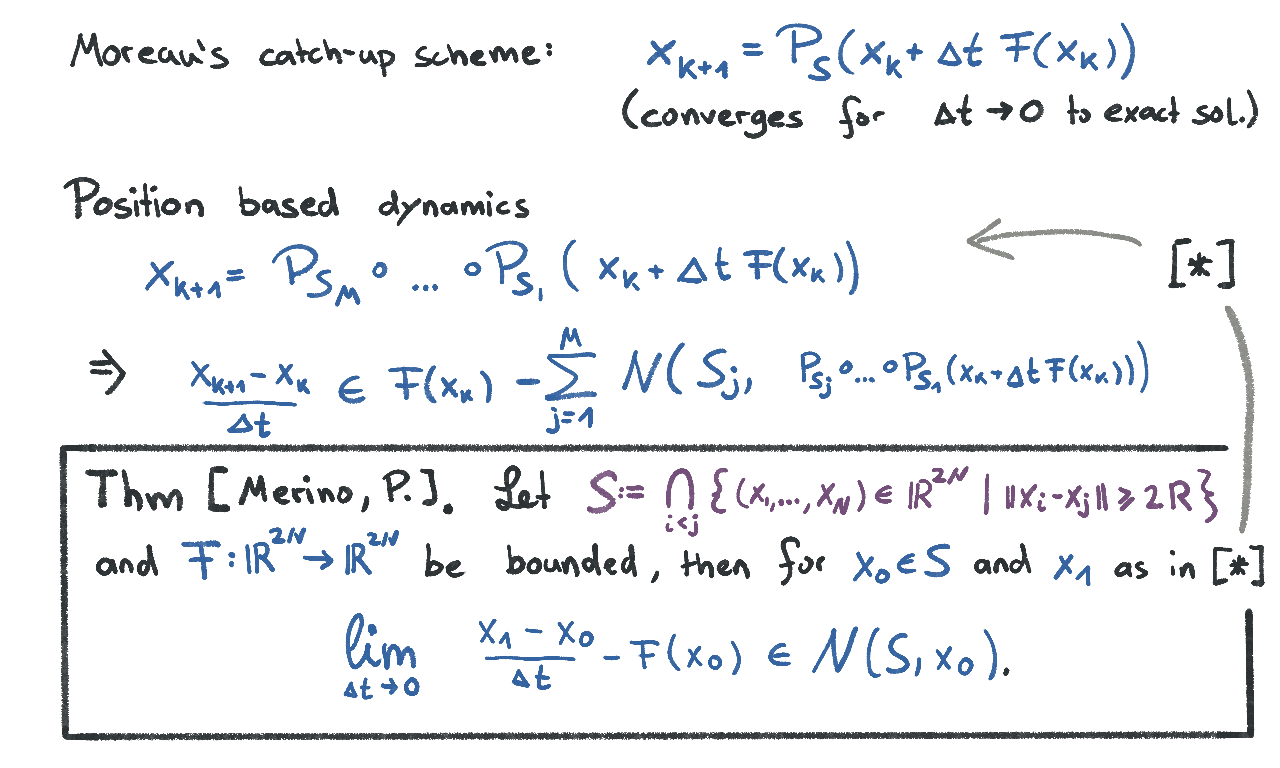 Moreau's catch-up scheme: x_{k+1} = P_S(x_k + Δt F(x_k))
(converges for Δt → 0 to exact sol.)
Position based dynamics
x_{k+1} = P_{S_M} ∘ ... ∘ P_{S_1} ( x_k + Δt F(x_k)) [*]
⇒ (x_{k+1} - x_k)/Δt ∈ F(x_k) - ∑_{j=1}^{M} N( S_j, P_{S_j} ∘ ... ∘ P_{S_1}(x_k + Δt F(x_k)))
Thm [Merino, P.]. Let S := ⋂_{i<j} {(x_1, ..., x_N) ∈ ℝ^{2N} | ||x_i - x_j|| ⩾ 2R}
and F : ℝ^{2N} → ℝ^{2N} be bounded, then for x_0 ∈ S and x_1 as in [*]
lim_{Δt → 0} (x_1 - x_0)/Δt - F(x_0) ∈ N(S, x_0).